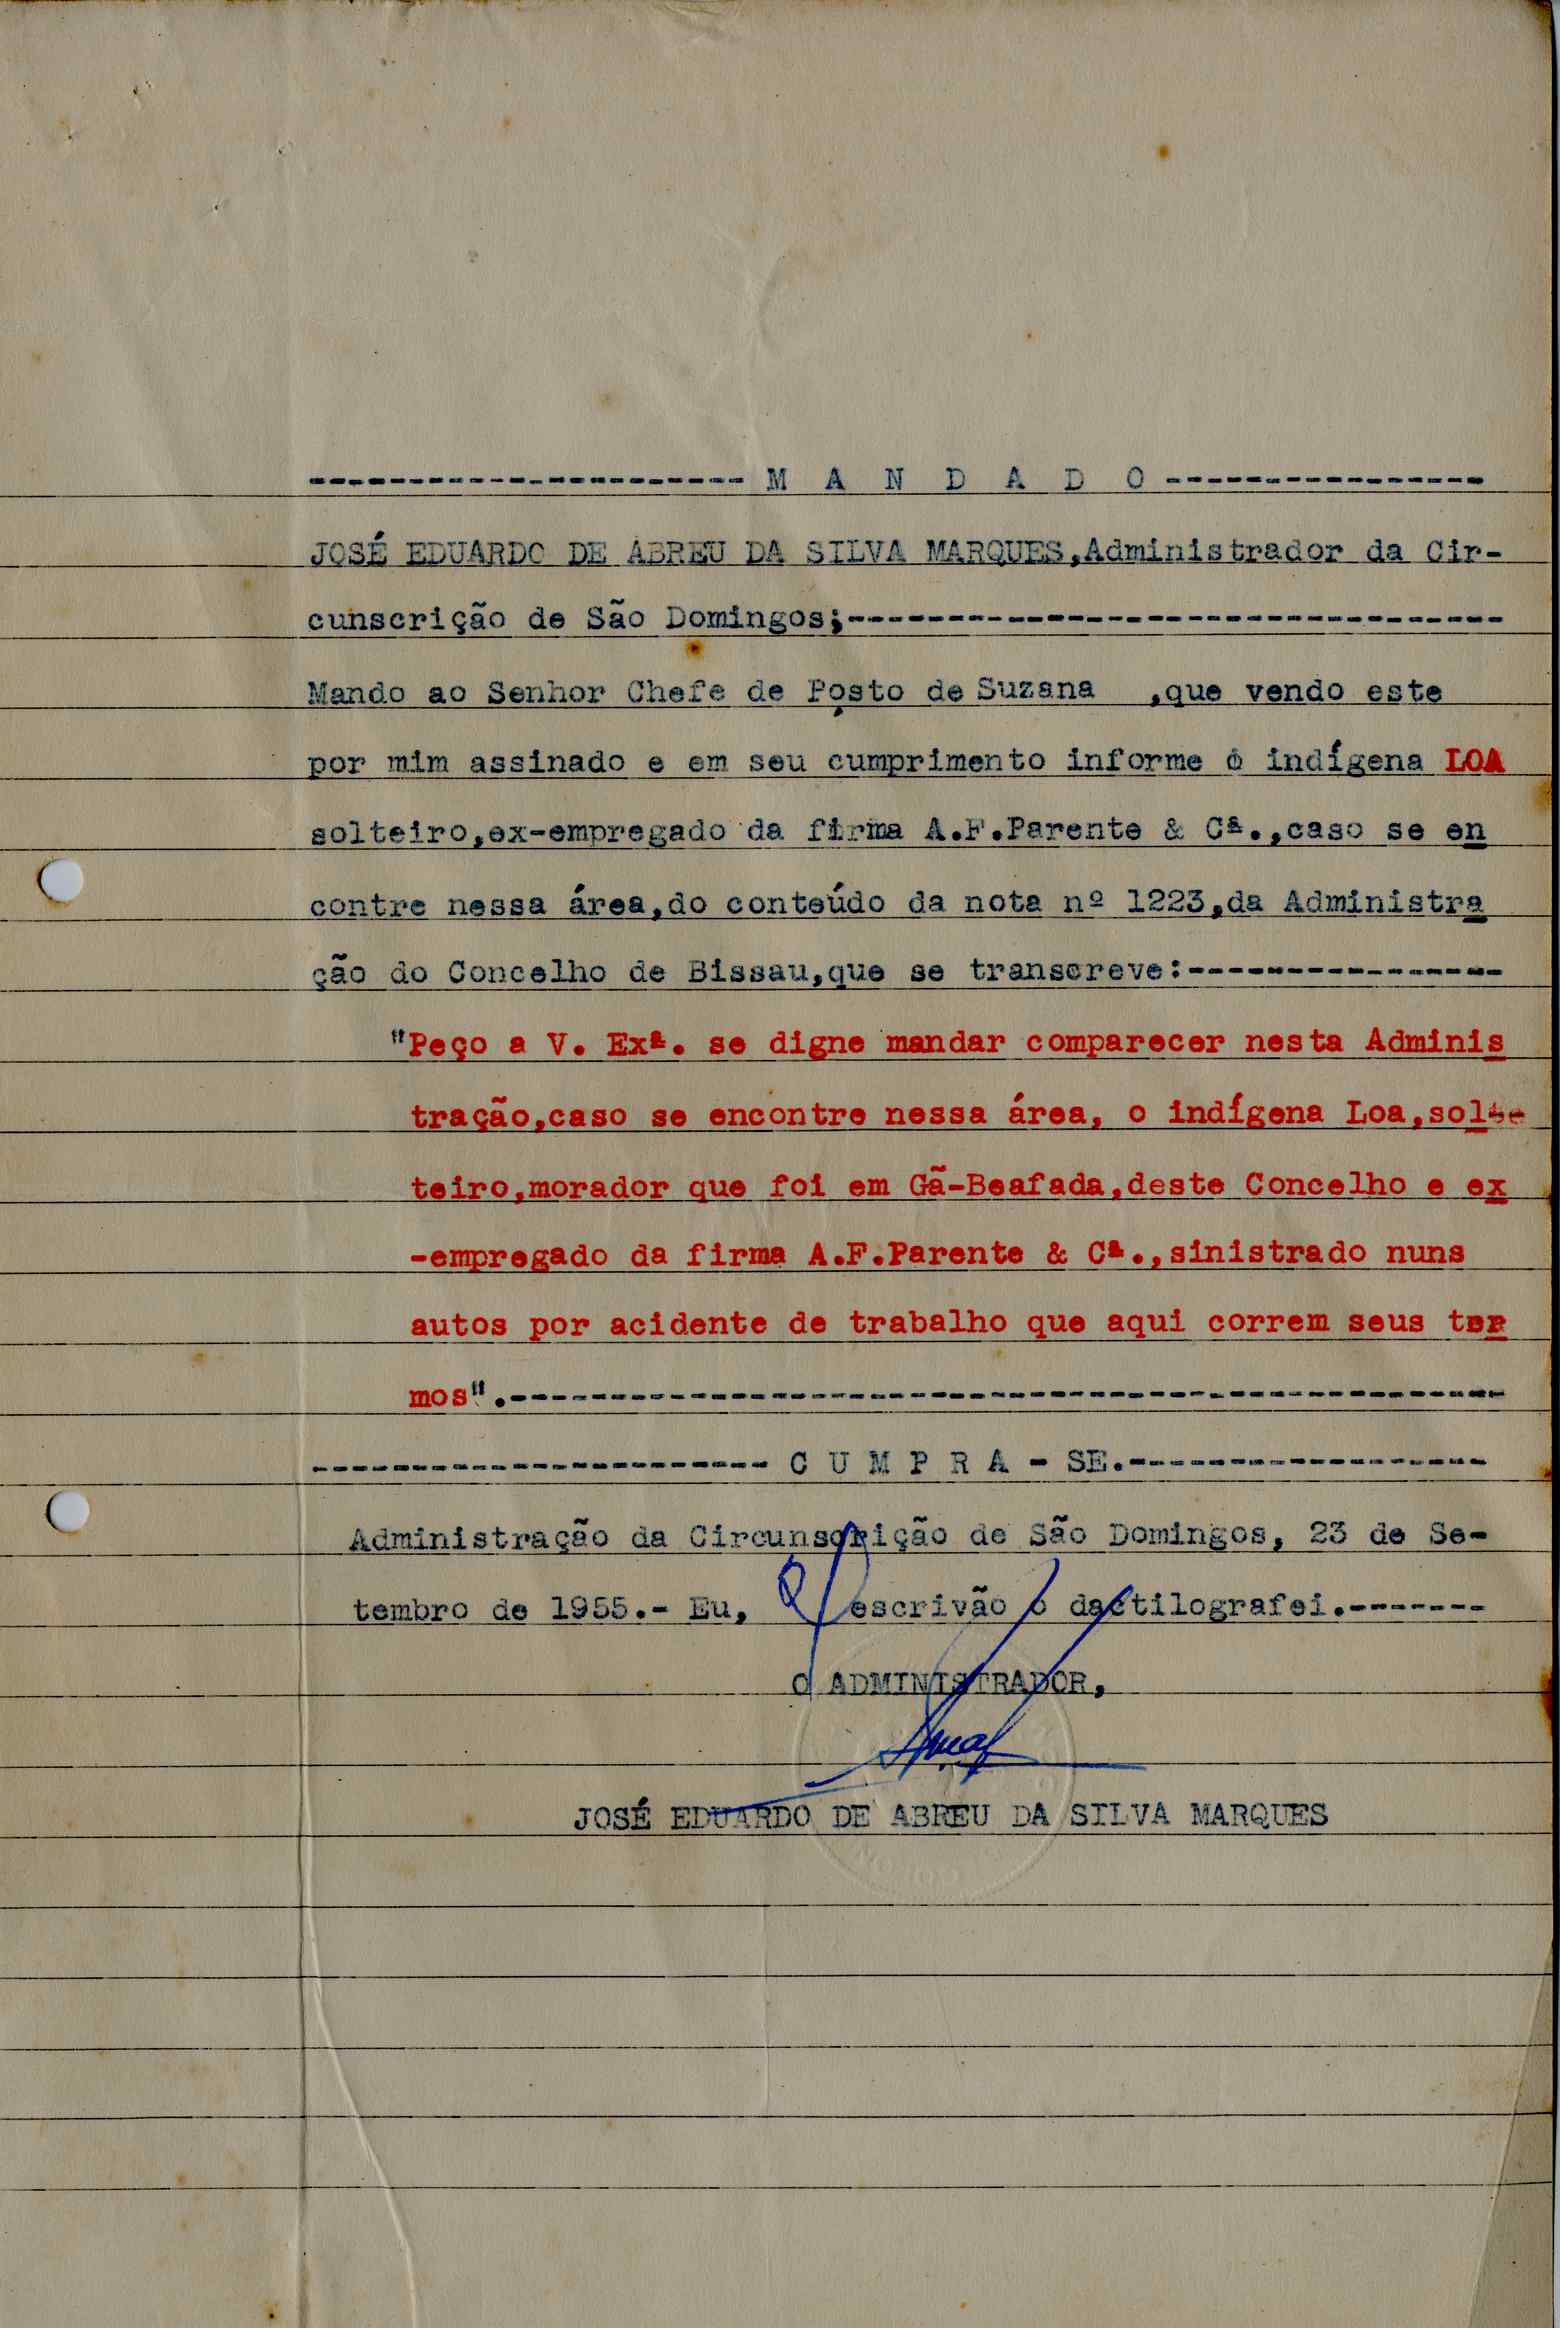 ---------------------- M A N D A D O ----------------
JOSÉ EDUARDO DE ABREU DA SILVA MARQUES,Administrador da Cir-
cunscrição de São Domingos;---------------------------------
Mando ao Senhor Chefe de Posto de Suzana ,que vendo este
por mim assinado e em seu cumprimento informe o indígena LOA
solteiro,ex-empregado da firma A.F.Parente & Cª.,caso se en
contre nessa área,do conteúdo da nota nº 1223,da Administra
ção do Concelho de Bissau,que se transcreve:----------------
"Peço a V. Exª. se digne mandar comparecer nesta Adminis
tração,caso se encontre nessa área, o indígena Loa,sol
teiro,morador que foi em Gã-Beafada,deste Concelho e ex
-empregado da firma A.F.Parente & Cª.,sinistrado nuns
autos por acidente de trabalho que aqui correm seus ter
mos".--------------------------------------------------
----------------------- C U M P R A - SE.------------------
Administração da Circunscrição de São Domingos, 23 de Se-
tembro de 1955.- Eu, escrivão o dactilografei.-------
O ADMINISTRADOR,
JOSÉ EDUARDO DE ABREU DA SILVA MARQUES